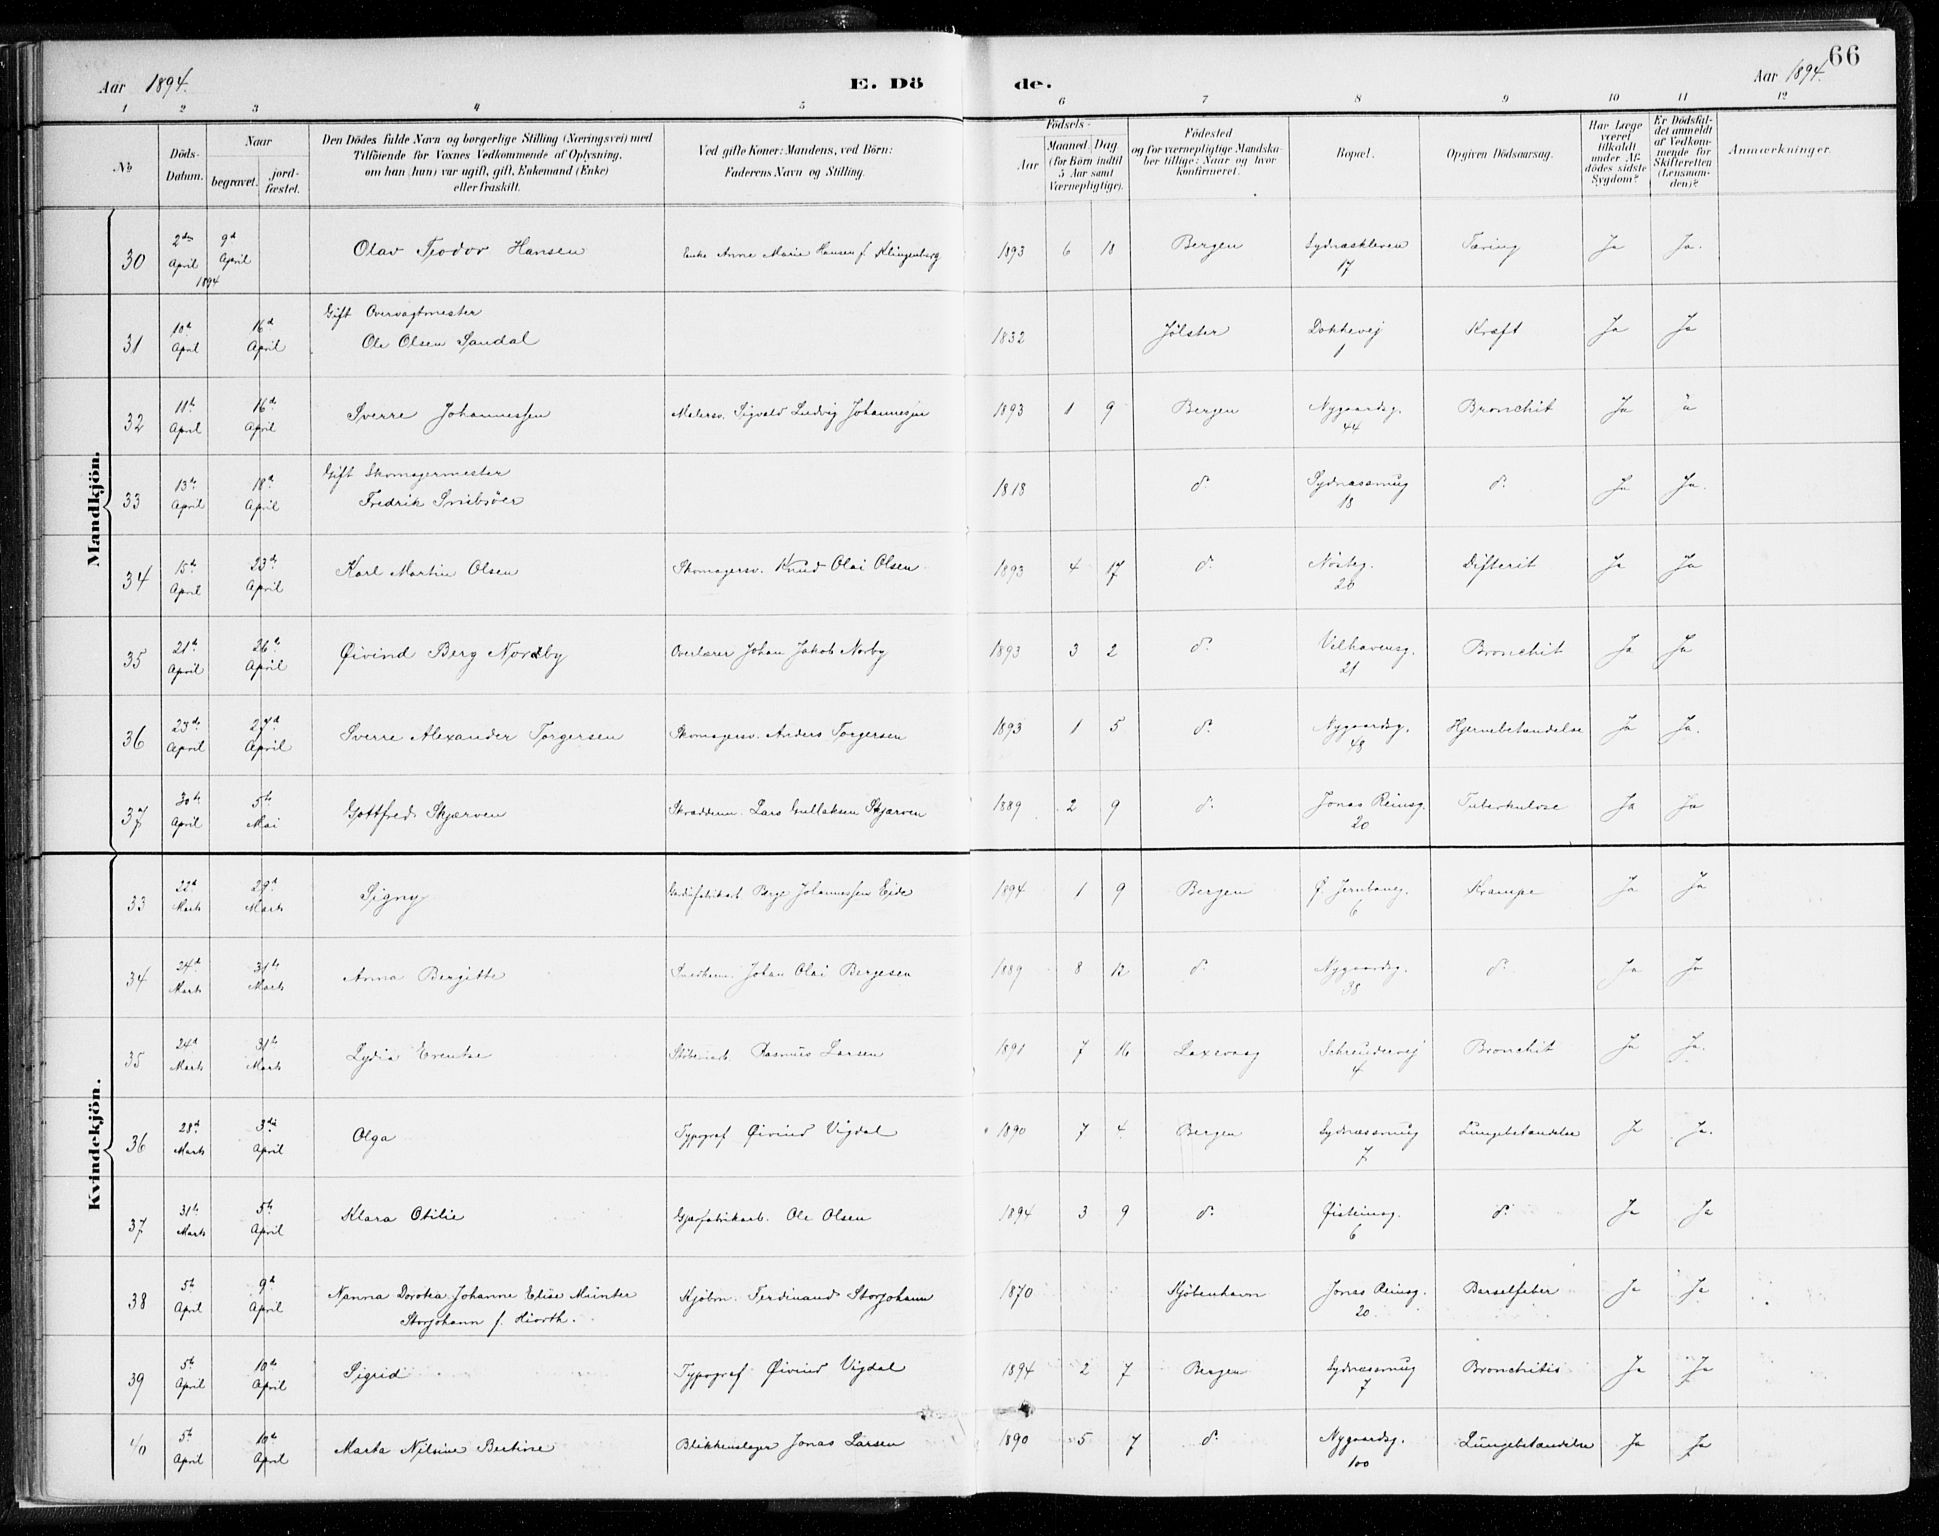 66
Aar 1894.
E. Dö
de.
Aar 1894.
1 2 3 4 5 6 7 8 9 10 11 12
No
Döds-Datum.
Naar
begravet.
jord-fæstet.
Den Dödes fulde Navn og borgerlige Stilling (Næringsvei) med
Tilföiende for Voxnes Vedkommende af Oplysning,
om han (hun) var ugift, gift, Enkemand (Enke)
eller fraskilt.
Ved gifte Koner: Mandens, ved Börn:
Faderens Navn og Stilling.
Födsels-
Aar
Maaned. Dag
(for Börn indtil
5 Aar samt
Værnepligtige).
Födested
og for værnepligtige Mandska-
ber tillige: Naar og hvor
konfirmeret.
Bopæl.
Opgiven Dödsaarsag.
Har Læge
været
tilkaldt
under Af-
dödes sidste
Sygdom?
Er Dödsfal-
det anmeldt
af Vedkom-
mende for
Skifteretten
(Lensman-
den)?
Anmærkninger.
Mandkjön.
30 2den April 9d April 1894 Olav Teodor Hansen Enke Anne Marie Hansen f. Klingenberg 1893 6 18 Bergen Sydnæskleven 17 Tæring Ja Ja.
31 10d April 16d April Gift Overvagtmester
Ole Olsen Sandal 1832 Jølster Dokkevej 1 Kræft Ja Ja
32 11t April 16d April Sverre Johannessen Malersv. Sigvald Ludvig Johannesen 1893 1 9 Bergen Nygaardsg. 44 Bronchit Ja
33 13d April 18d April Gift Skomagermester
Fredrik Snibsøer 1818 do. Sydnæssmug 18 do. Ja Ja.
34 15d April 23d April Karl Martin Olsen Skomagersv. Knud Olai Olsen 1893 4 17 do. Nøsteg. 20 Difterit Ja Ja
35 21d April 26d April Øivind Berg Nordby Overlærer Johan Jakob Norby 1893 3 2 do. Vilhavensg. 21 Bronchit Ja Ja
36 23d April 27d April Sverre Alexander Torgersen Skomagersv. Anders Torgersen 1893 1 5 do. Nygaardsg. 48 Hjernebetændelse Ja Ja.
37 30te April 5te Mai Gottfred Skjærven Skræddersv. Lars Gullaksen Skjærven 1889 2 9 do. Jonas Reinsg. 20 Tuberkulose Ja Ja
Kvindekjön.
33 22d Marts 29d Marts Signy Berge Johannessen Eide 1894 1 9 Bergen Ø. Jernbaneg. 6 Krampe Ja Ja
34 24d Marts 31te Marts Anna Bergitte Snedkerm. Johan Olai Bergesen 1889 8 12 do. Nygaardsg. 38 do. Ja Ja
35 24d Marts 31te Marts Lydia Erentse Støberiarb. Rasmus Larsen 1891 7 16 Laxevaag Schreudervej 4 Bronchit Ja Ja.
36 28d Marts 3die April Olga Typograf Øivind Vigdal 1890 7 4 Bergen Sydnæssmug 7 Lungebetændelse Ja Ja.
37 31te Marts 5te April Klara Otilie Gjærfabrikarb. Ole Olsen 1894 3 9 do. Øisteinsg. 6 do. Ja Ja
38 5te April 9d April Nanna Dorotea Johanne Elise Münter
Storjohann f. Hiorth. Kjøbm. Ferdinand Storjohann 1870 Kjøbenhavn Jonas Reinsg. 20 Barselfeber Ja Ja
39 5te April 10de April Sigrid Typograf Øivind Vigdal 1894 2 7 Bergen Sydnæssmug 7 Bronchitis Ja Ja
40 5te April 10de April Marta Nilsine Bertine Blikkenslager Jonas Larsen 1890 5 7 do. Nygaardsg. 100 Lungebetændelse Ja Ja